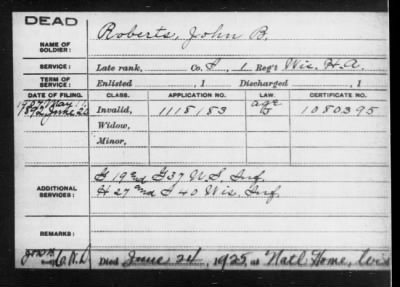 DEAD
NAME OF SOLDIER: Roberts, John B.
SERVICE: Late rank, Co. I, 1 Reg't Wis. H.A.
TERM OF SERVICE: Enlisted , 1 Discharged , 1
DATE OF FILING. CLASS. APPLICATION NO. LAW. CERTIFICATE NO.
1907 May 11
1892 June 23 Invalid, 1118183 age 1080395
Widow,
Minor,
ADDITIONAL SERVICES: G 19 & G 37 U.S. Inf.
H 27 and I 40 Wis. Inf.
REMARKS:
Died June 24, 1925, at Nat'l Home, Wis